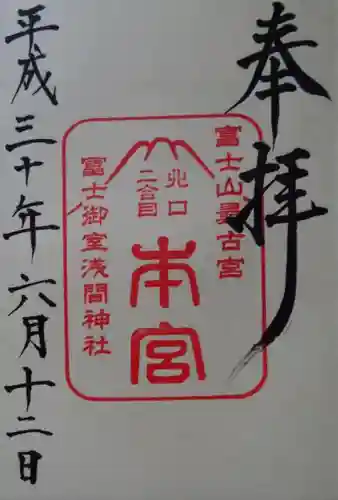 奉拝
富士山最古宮
北口
二合目
本宮
冨士御室浅間神社
平成三十年六月十二日